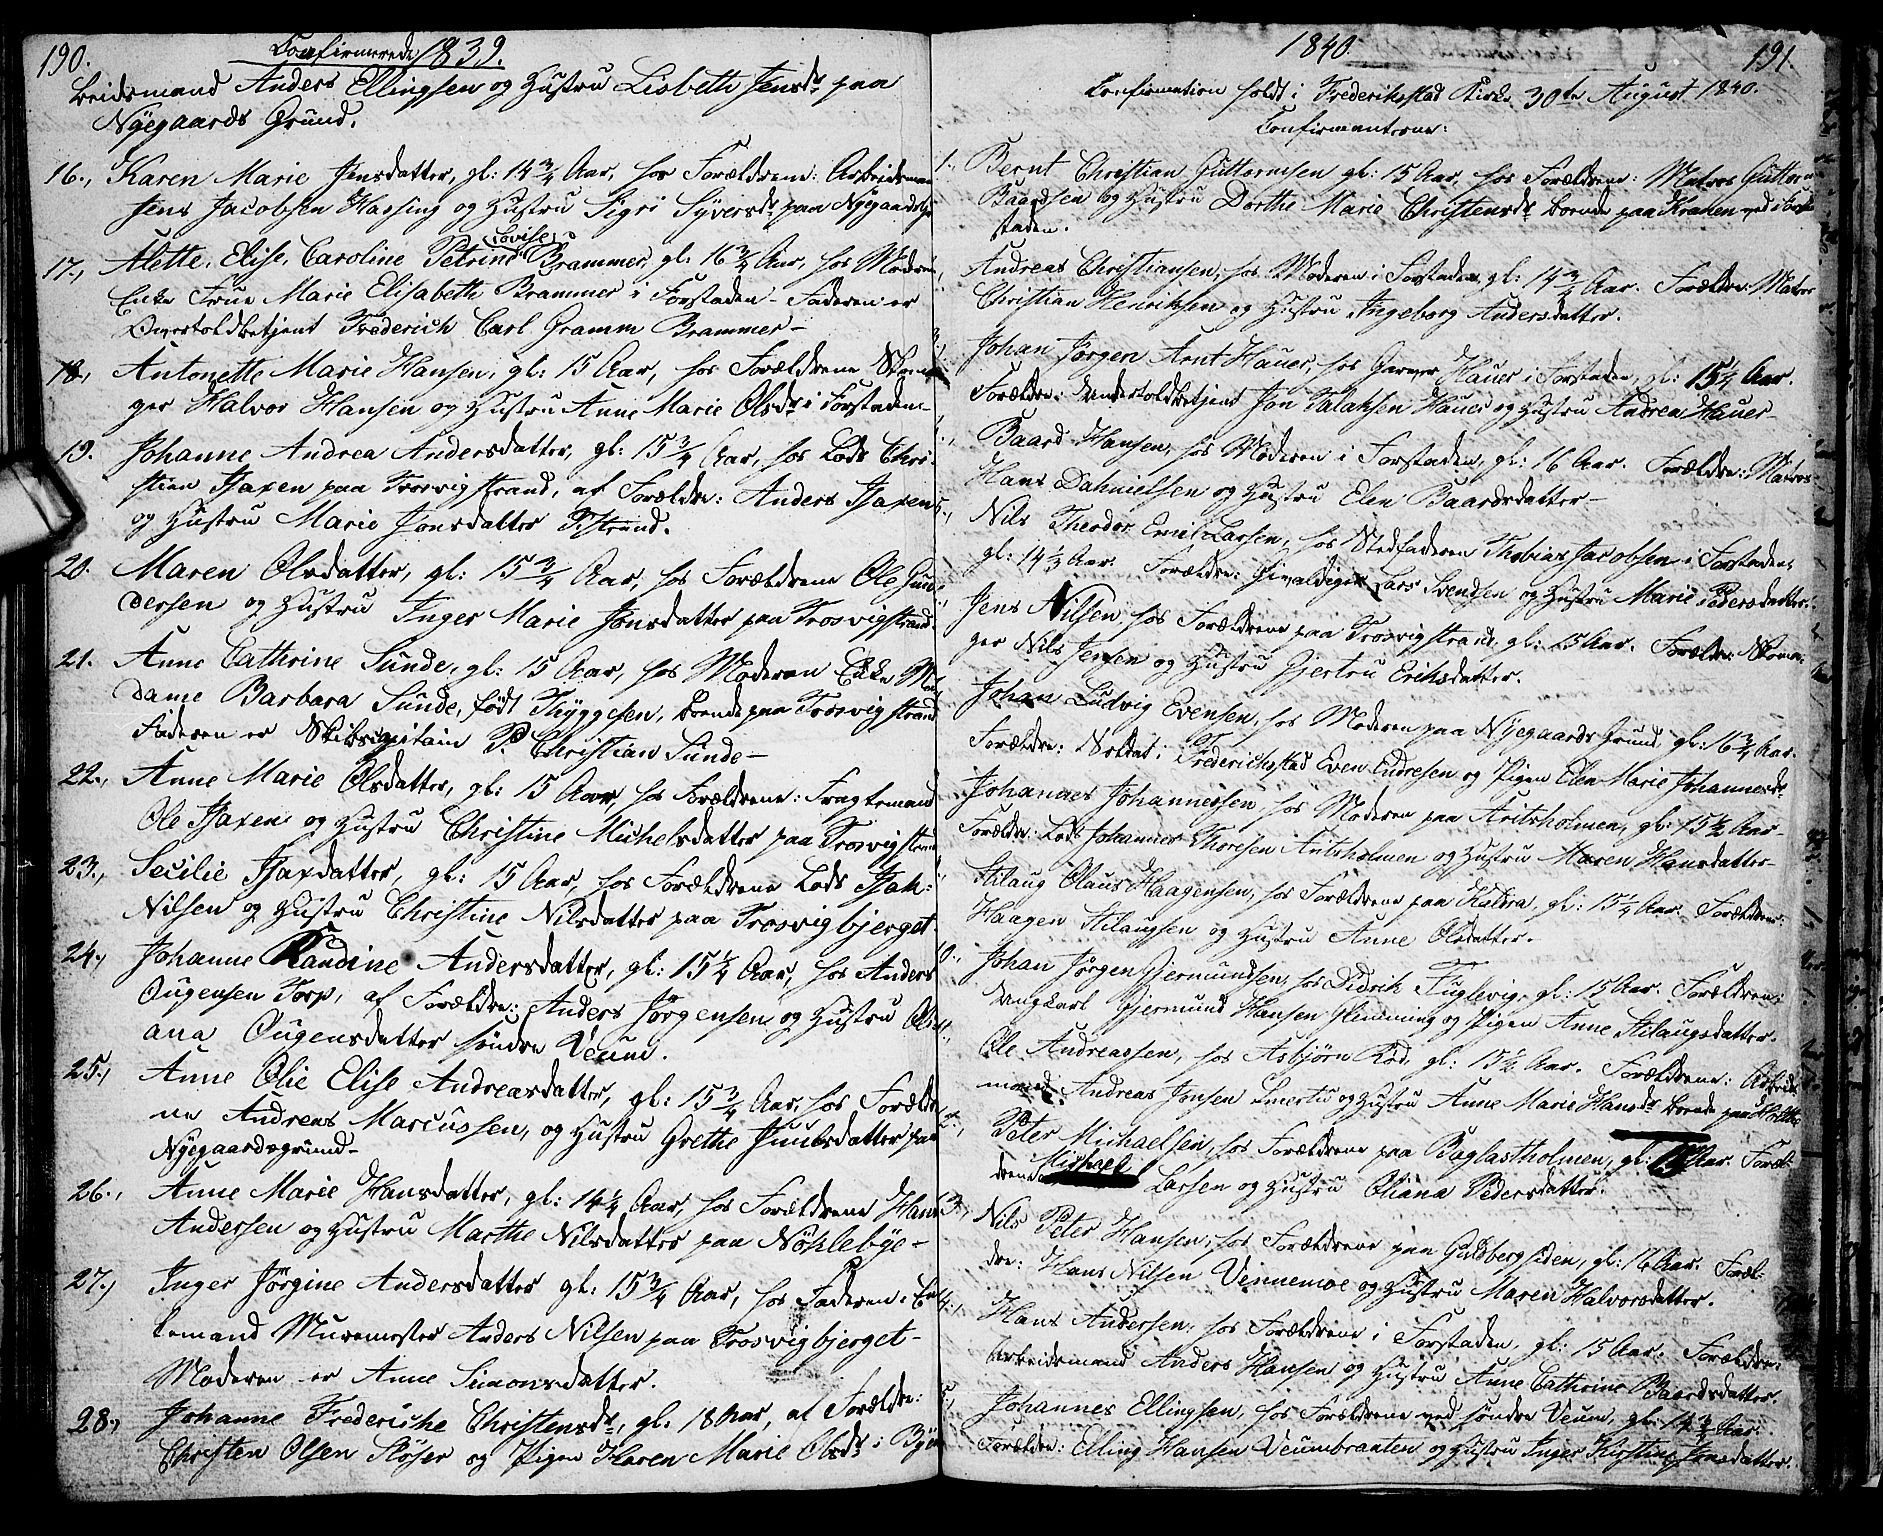 190.
Confirmerede 1839.
beidsmand Anders Ellingsen og Hustru Lisbeth Jensdr paa
Nyegaards Grund.
16., Karen Marie Jensdatter, gl: 14 3/4 Aar, hos Forældrene: Arbeidsman
Jens Jacobsen Hassing og Hustru Sigri Syversdr paa Nyegaards
17., Alette, Elise, Caroline Petrine Lovise Brammer, gl: 16 3/4 Aar, hos Modren
Enke Frue Marie Elisabeth Brammer i Forstaden - Faderen er
Overtoldbetjent Frederich Carl Gramm Brammer -
18., Antonette Marie Hansen, gl: 15 Aar, hos Forældrene Skoma
ger Halvor Hansen og Hustru Anne Marie Olsdr i Forstaden -
19. Johanne Andrea Andersdatter, gl: 15 3/4 Aar, hos Lods Chri-
stian Isaxen paa Trosvigstrand, af Forældre: Anders Isaxen
og Hustru Marie Jonsdatter Tstrand.
20. Maren Olsdatter, gl: 15 3/4 Aar, hos Forældrene Ole Gun
dersen og Hustru Inger Marie Jonsdatter paa Trosvigstrand.
21. Anne Cathrine Sunde, gl: 15 Aar, hos Moderen Enke Ma
dame Barbara Sunde, født Thyggesen, boende paa Trosvigstrand
Faderen er Skibscapitain P. Christian Sunde -
22., Anne Marie Olsdatter, gl: 15 Aar, hos Forældrene: Fragtemand
Ole Isaxen og Hustru Christine Michelsdatter paa Trosvigstrand
23., Secilie Isaxdatter, gl: 15 Aar, hos Forældrene Lods Isak:
Nilsen og Hustru Christine Nilsdatter paa Trosvigbjerget.
24., Johanne Randine Andersdatter, gl: 15 1/4 Aar, hos Anders
Ougensen Torp, af Forældre: Anders Jörgensen og Hustru Oli
ana Ougensdatter søndre Veum.
25., Anne Olie Elise Andreasdatter, gl: 15 3/4 Aar, hos Foræld
ne Andreas Marcussen, og Hustru Grethe Juulsdatter paa
Nyegaardsgrund -
26., Anne Marie Hansdatter, gl: 14 1/2 Aar, hos Forældrene Hans
Andersen og Hustru Marthe Nilsdatter paa Nöklebye -
27., Inger Jörgine Andersdatter gl: 15 3/4 Aar, hos Faderen: En
kemand Muremester Anders Nilsen paa Trosvigbjerget -
Moderen er Anne Simonsdatter.
28., Johanne Frederiche Christensdr, gl: 18 Aar, af Forældre:
Christen Olsen Slöser og Pigen Karen Marie Olsdr i Byen
1840.
191.
Confirmation holdt i Frederiksstad Kirke 30te August 1840.
Confirmanterne:
1. Bernt Christian Guttormsen gl: 15 Aar, hos Forældrene: Matros Guttorm
Baardsen og Hustru Dorthe Marie Christensdr boende paa Kranen ved i For
staden.
Andreas Christiansen, hos Moderen i Forstaden, gl: 14 3/4 Aar. Forældre: Matros
Christian Henriksen og Hustru Ingeborg Andersdatter.
3., Johan Jörgen Arnt Hauer, hos Garver Hauer i Forstaden, gl: 15 1/4 Aar.
Forældre: Undertoldbetjent Jan Talaksen Hauer og Hustru Andrea Hauer -
Baard Hansen, hos Moderen i Forstaden, gl: 16 Aar. Forældre: Matros
Hans Dahnielsen og Hustru Elen Baardsdatter -
5., Nils Theodor Emil Larsen, hos Stedfaderen Thobias Jacobsen i Forstaden,
gl: 14 1/2 Aar. Forældre: Lars Svendsen og Hustru Marie Pedersdatter.
Jens Nilsen, hos Forældrene paa Trosvigstrand, gl: 15 Aar. Forældre: Skoma-
ger Nils Jensen og Hustru Gjertru Eriksdatter.
Johan Ludvig Evensen, hos Moderen paa Nyegaards Grund, gl: 16 3/4 Aar.
Forældre: Soldat i Frederichsstad Even Endresen og Pigen Elen Marie Johannesdr
Johannes Johannessen, hos Moderen paa Aritsholmen, gl: 15 1/2 Aar -
Forældre: Lods Johannes Thoresen Aritsholmen og Hustru Maren Hansdatter -
Stilaug Olaus Haagensen, hos Forældrene paa Kalera, gl: 15 1/4 Aar. Forældrene:
Haagen Stilaugsen og Hustru Anne Olsdatter.
10., Johan Jörgen Gjermundsen, hos Didrik Fuglevig, gl: 15 Aar. Forældrene:
Ungkarl Gjermund Hansen Glemming og Pigen Anne Stilaugsdatter.
11. Ole Andreassen, hos Asbjörn Röd, gl: 15 1/2 Aar. Forældrene: Arbeids
mand Andreas Jonsen og Hustru Anne Marie Hansdr boende paa
12., Peter Michaelsen, hos Forældrene paa Baglastholmen, gl: Aar. Foræl-
drene Michael Larsen og Hustru Oliana Pedersdatter.
13., Nils Peter Hansen, hos Forældrene paa Guldbergsiden, gl: 16 Aar. Foræl-
dre: Hans Nilsen Vennemoe og Hustru Maren Halvorsdatter.
14., Hans Andersen, hos Forældrene i Forstaden, gl: 15 Aar. Forældre:
Arbeidsmand Anders Hansen og Hustru Anne Cathrine Baardsdatter.
5., Johannes Ellingsen, hos Forældrene ved söndre Veum, gl: 14 3/4 Aar.
Forældre: Elling Hansen Veumbraaten og Hustru Inger Kirstine Jensdatter.